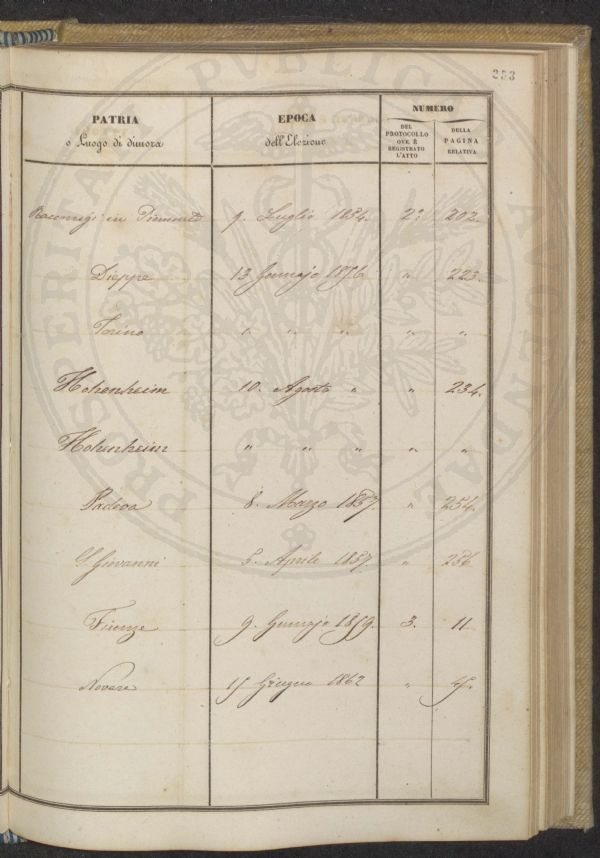 353
PATRIA
o Luogo di dimora
EPOCA
dell'Elezione
NUMERO
DEL
PROTOCOLLO
OVE È
REGISTRATO
L'ATTO
DELLA
PAGINA
RELATIVA
Raconigi in Piemonte 9. Luglio 1854. 2° 202.
Dieppe 13 Gennajo 1856 " 223.
Torino " " " " "
Hohenheim 10. Agosto " " 234.
Hohenheim " " " " "
Padova 8. Marzo 1857. " 254.
S. Giovanni 5. Aprile 1857. " 256
Firenze 9. Gennajo 1859. 3. 11.
Novara 15 Giugno 1862 " 45.
PROSPERITATI PVBLICAE AVGENDAE